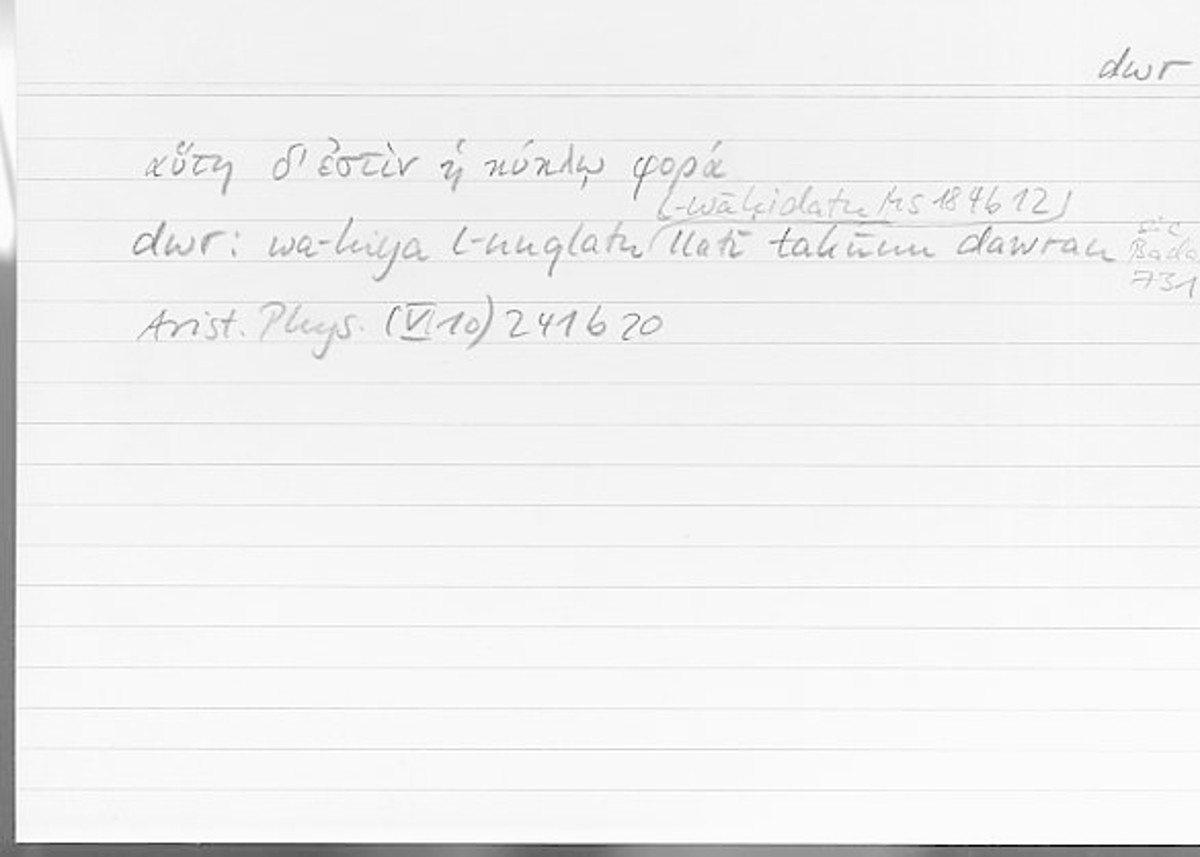 dwr
αὕτη δ' ἐστὶν ἡ κύκλῳ φορά
(l-wāḥidatu Ms 184b12)
dwr: wa-hiya l-nuqlatu llatī takūnu dawran sic
Bada
731
Arist. Phys. (VI 10) 241b20